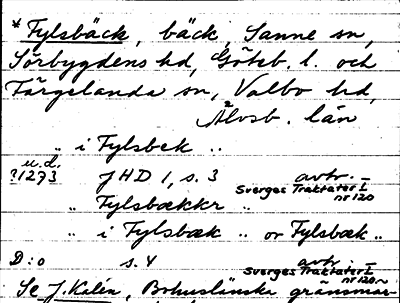 * Fylsbäck, bäck, Sanne sn,
Sörbygdens hd, Göteb. l. och
Färgelanda sn, Valbo hd,
Älvsb. län
„ i Fylsbek „
u.d.
?1273 JHD 1, s. 3 avtr. –
Sverges Traktater I
nr 120
„ Fylsbækkr „
„ i Fylsbæk „ or Fylsbæk „
D:o s. 4 avtr. –
Sverges Traktater I
nr 120
Se J. Kalén, Bohuslänska gränsmär